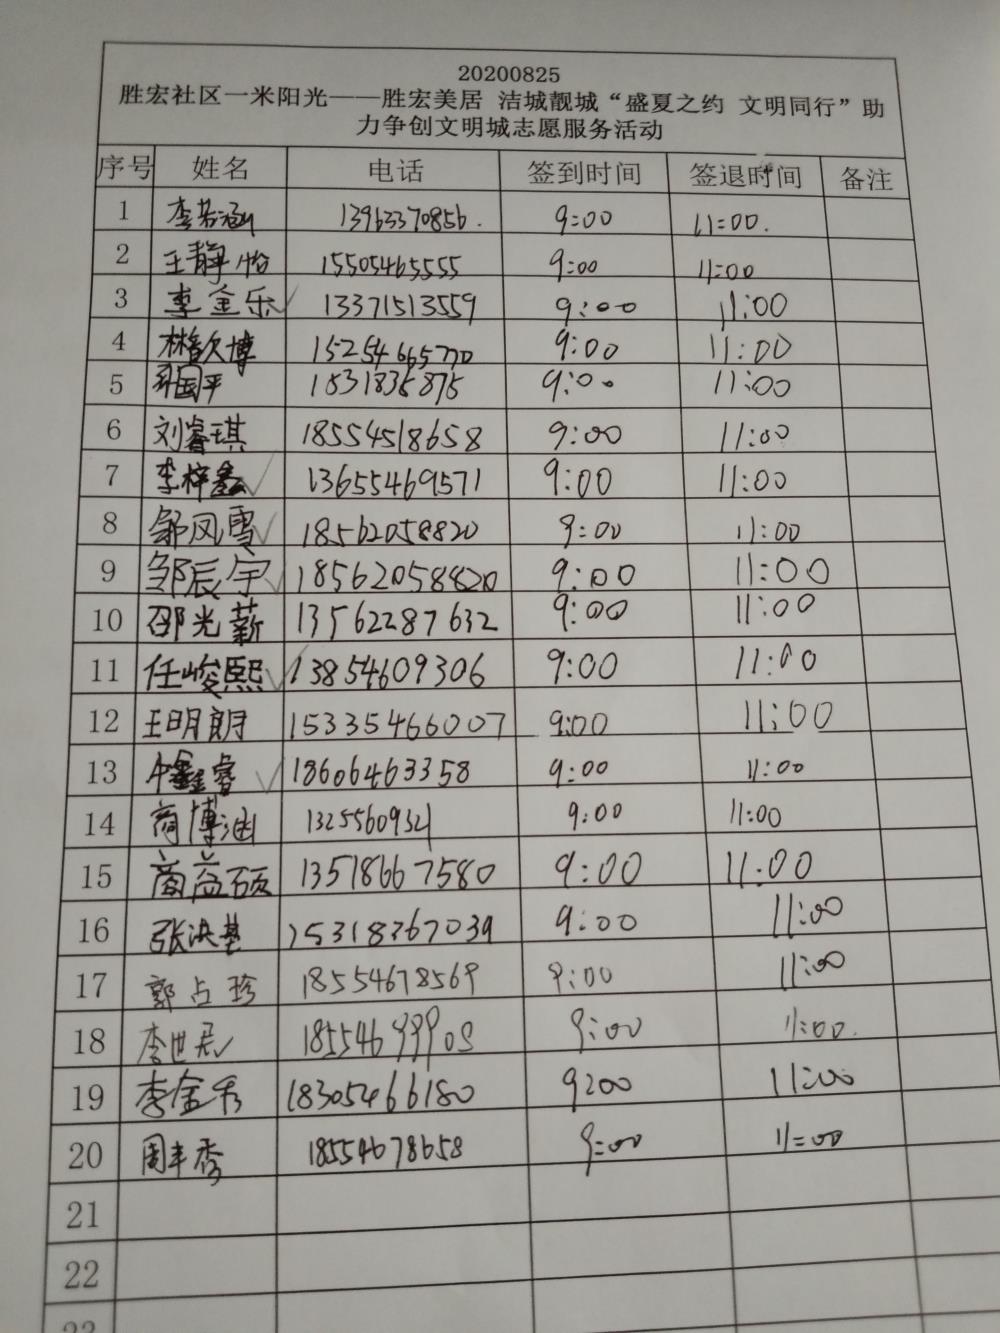 20200825
胜宏社区一米阳光——胜宏美居 洁城靓城“盛夏之约 文明同行”助
力争创文明城志愿服务活动
序号 姓名 电话 签到时间 签退时间 备注
1 李若涵 13963370856. 9:00 11:00.
2 王静怡 15505465555 9:00 11:00
3 李金乐✓ 13371513559 9:00 11:00
4 博 15254665770 9:00 11:00
5 国平 1531835875 9:00 11:00
6 刘睿琪 18554518658 9:00 11:00
7 李梓鑫✓ 13655469571 9:00 11:00
8 邹凤雪✓ 18562058820 9:00 11:00
9 邹辰宇✓ 18562058820 9:00 11:00
10 邵光薪 13562287632 9:00 11:00
11 任峻熙✓ 13854609306 9:00 11:00
12 王明朗 15335466007 9:00 11:00
13 鑫睿✓ 18606463358 9:00 11:00
14 商博涵 13255609321 9:00 11:00
15 商益硕 13518667580 9:00 11:00
16 张洪基 15318367039 9:00 11:00
17 郭占珍 18554678569 9:00 11:00
18 李世 18554699905 9:00 11:00.
19 李金秀 18305466180 9:00 11:00
20 周丰秀 18554678658 9:00 11:00
21
22
23